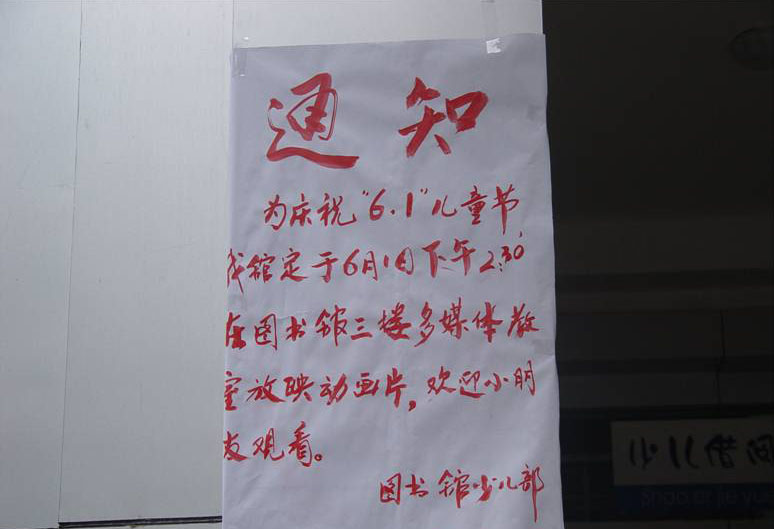 通知
为庆祝“6.1”儿童节,
我馆定于6月1日下午2:30
在图书馆三楼多媒体教
室放映动画片,欢迎小朋
友观看。
图书馆少儿部
少儿借阅